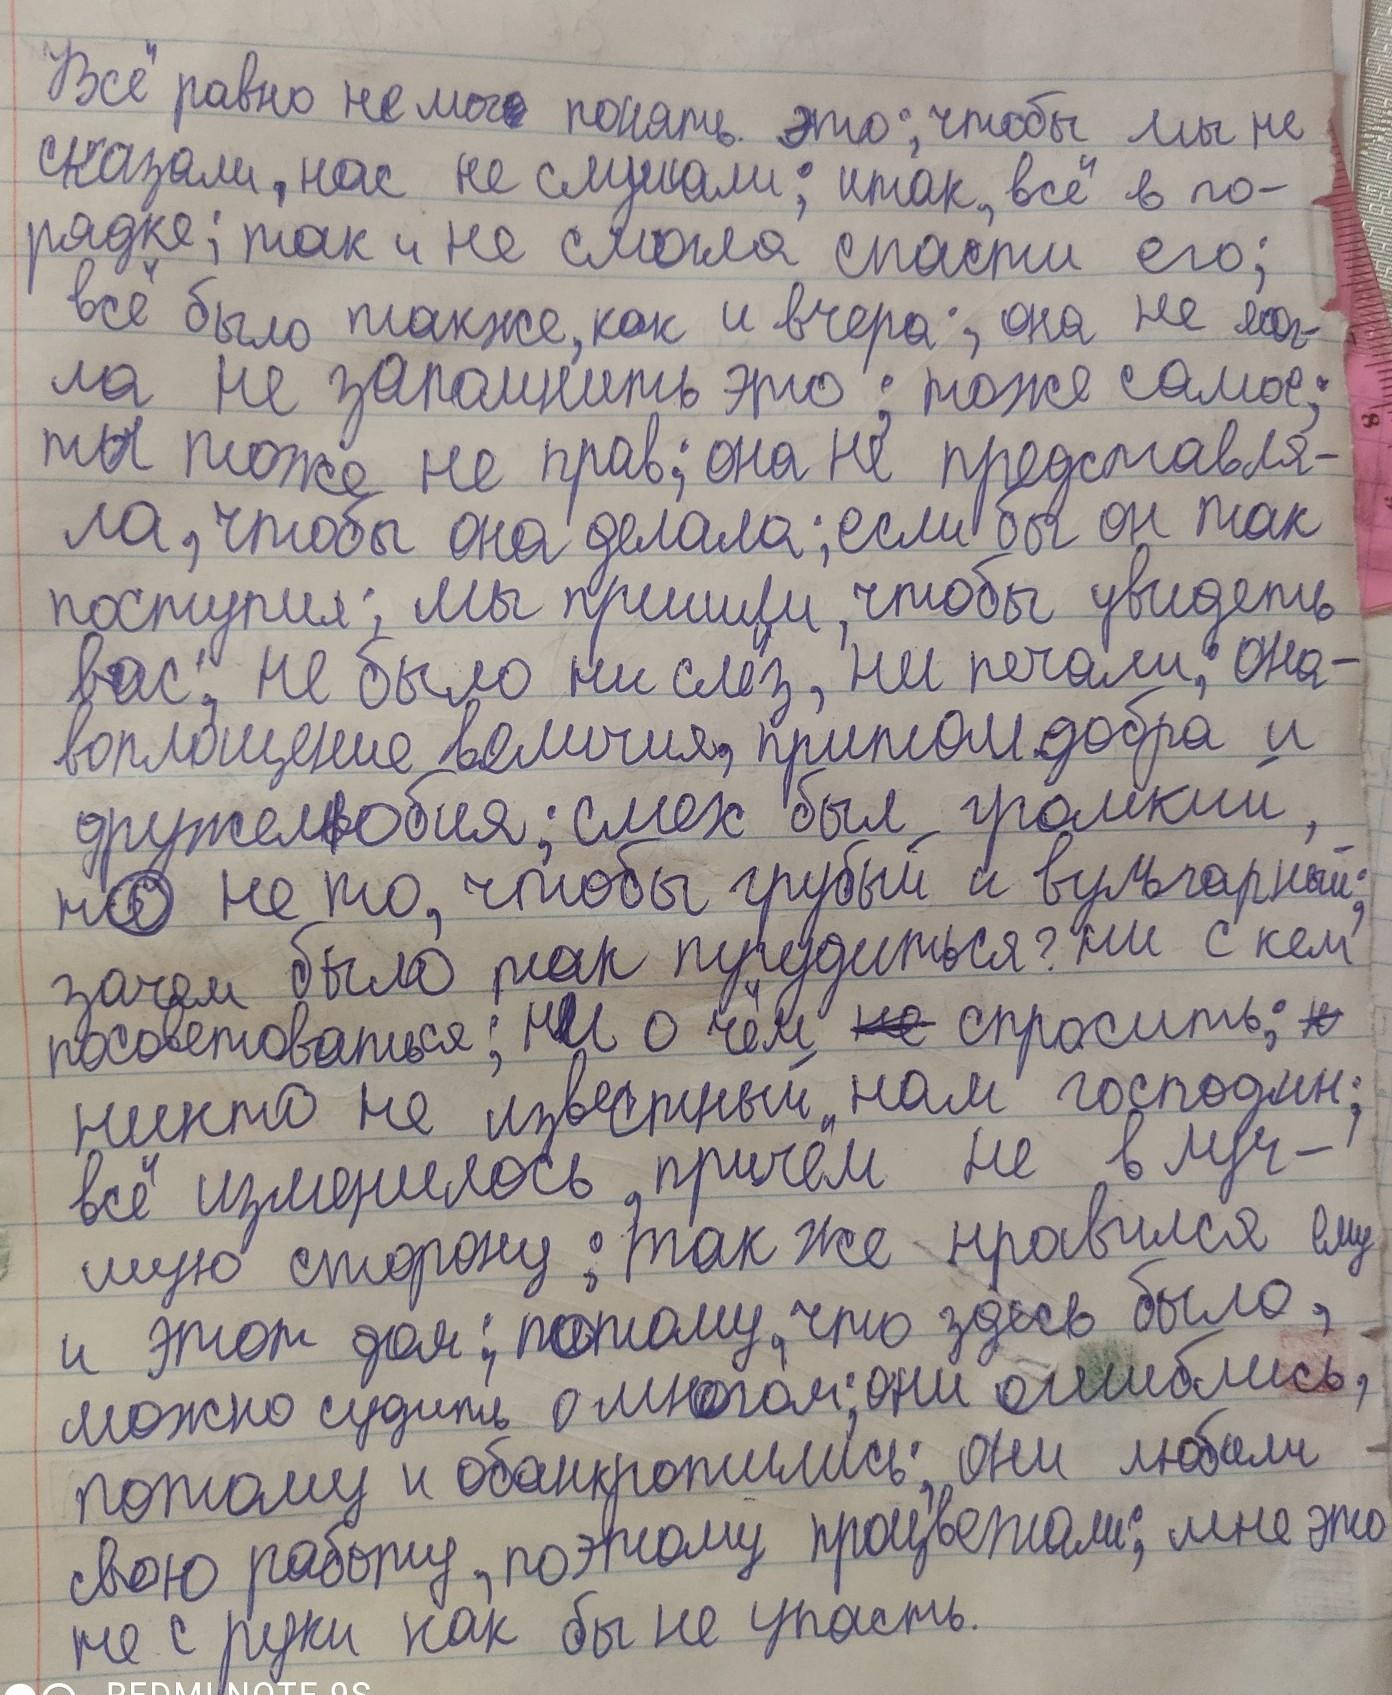 Всё равно не мог понять это; чтобы мы не
сказали, нас не слушали; итак, всё в по-
рядке; так и не смогла спасти его;
всё было также, как и вчера; она не мог-
ла не запомнить это; тоже самое;
ты тоже не прав; она не представля-
ла, чтобы она делала; если бы он так
поступил; мы пришли, чтобы увидеть
вас; не было ни слёз, ни печали; она-
воплощение величия, притом добра и
дружелюбия; смех был громкий,
но не то, чтобы грубый и вульгарный;
зачем было так трудиться? ни с кем
посоветоваться; ни о чём спросить;
никто не известный нам господин;
всё изменилось, причём не в луч-
шую сторону; так же нравился ему
и этот дом; потому, что здесь было,
можно судить о многом; они ошиблись,
потому и обанкротились; они любили
свою работу, поэтому процветали; мне это
не с руки как бы не упасть.
REDMI NOTE 9S